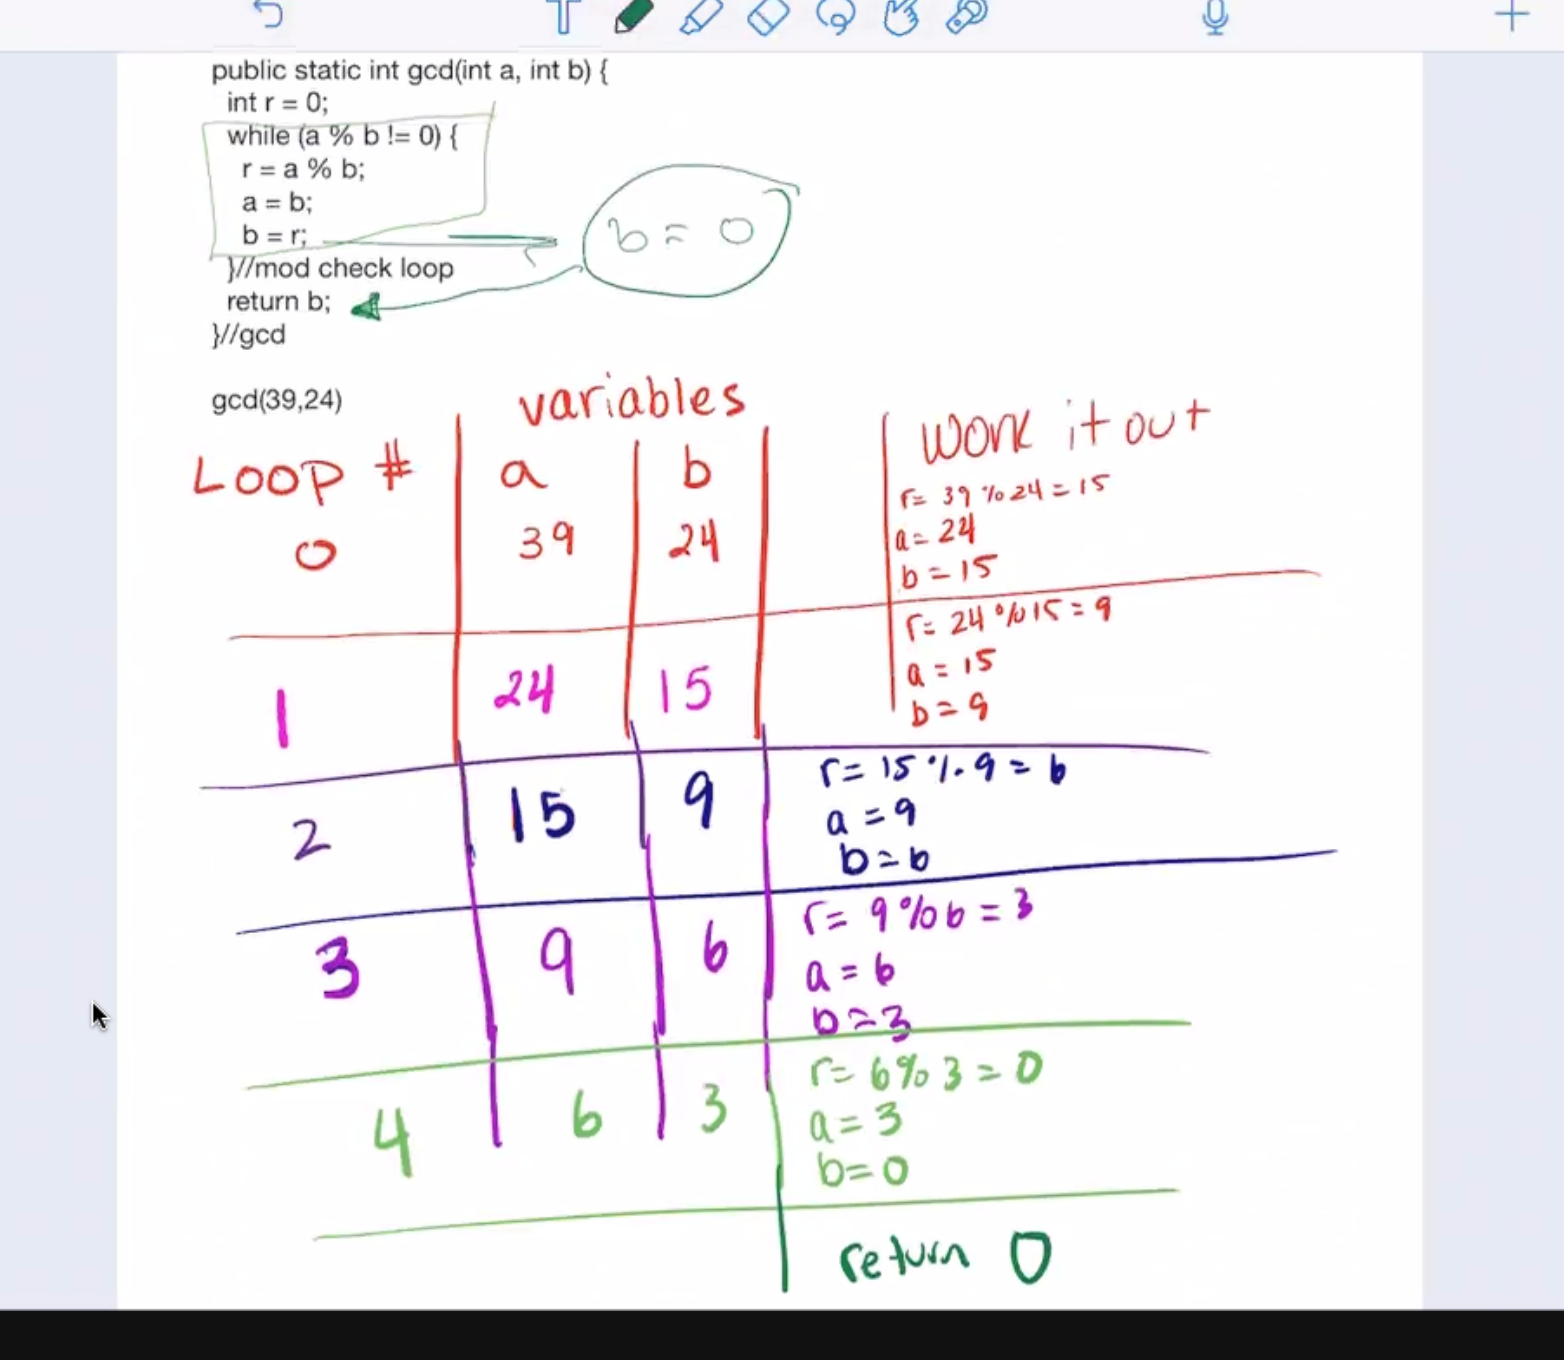 public static int gcd(int a, int b) {
int r = 0;
while (a % b != 0) {
r = a % b;
a = b;
b = r;
b = 0
}//mod check loop
return b;
}//gcd
gcd(39,24)
variables
Work it out
LOOP #
a
b
0
39
24
r= 39 % 24 = 15
a= 24
b = 15
1
24
15
r= 24 % 15 = 9
a = 15
b = 9
2
15
9
r= 15 % 9 = 6
a = 9
b = 6
3
9
6
r= 9 % 6 = 3
a = 6
b = 3
4
6
3
r= 6 % 3 = 0
a = 3
b = 0
return 0